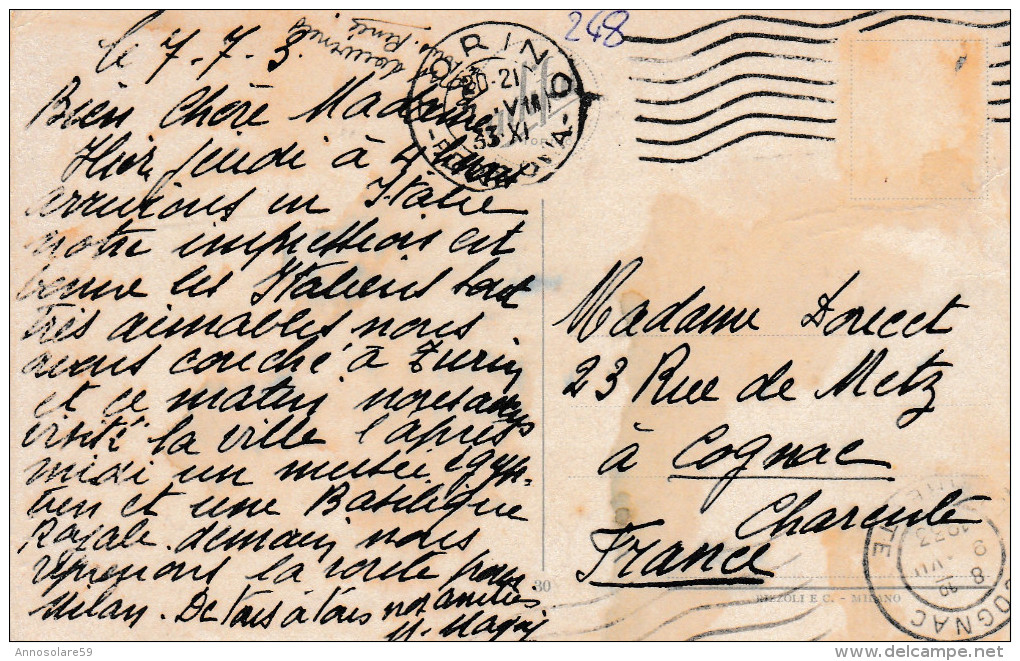 248
le 7-7-3
René
Bien Chère Madame
Hier jeudi à 4
arrivions en Italie
notre impression est
bonne les Italiens sont
très aimables nous
avons couché à Turin
et ce matin nous avons
visité la ville l'après
midi un musée égyp-
tien et une Basilique
Royale. demain nous
reprenons la route pour
Milan. De tous à tous nos amitiés.
Madame Doucet
23 Rue de Metz
à Cognac
Charente
France
TORINO
20-21
VII
33 XI
FERROVIA
30
RIZZOLI E C. - MILANO
COGNAC
CHARENTE
8
VII
Annosolare59
www.delcampe.net